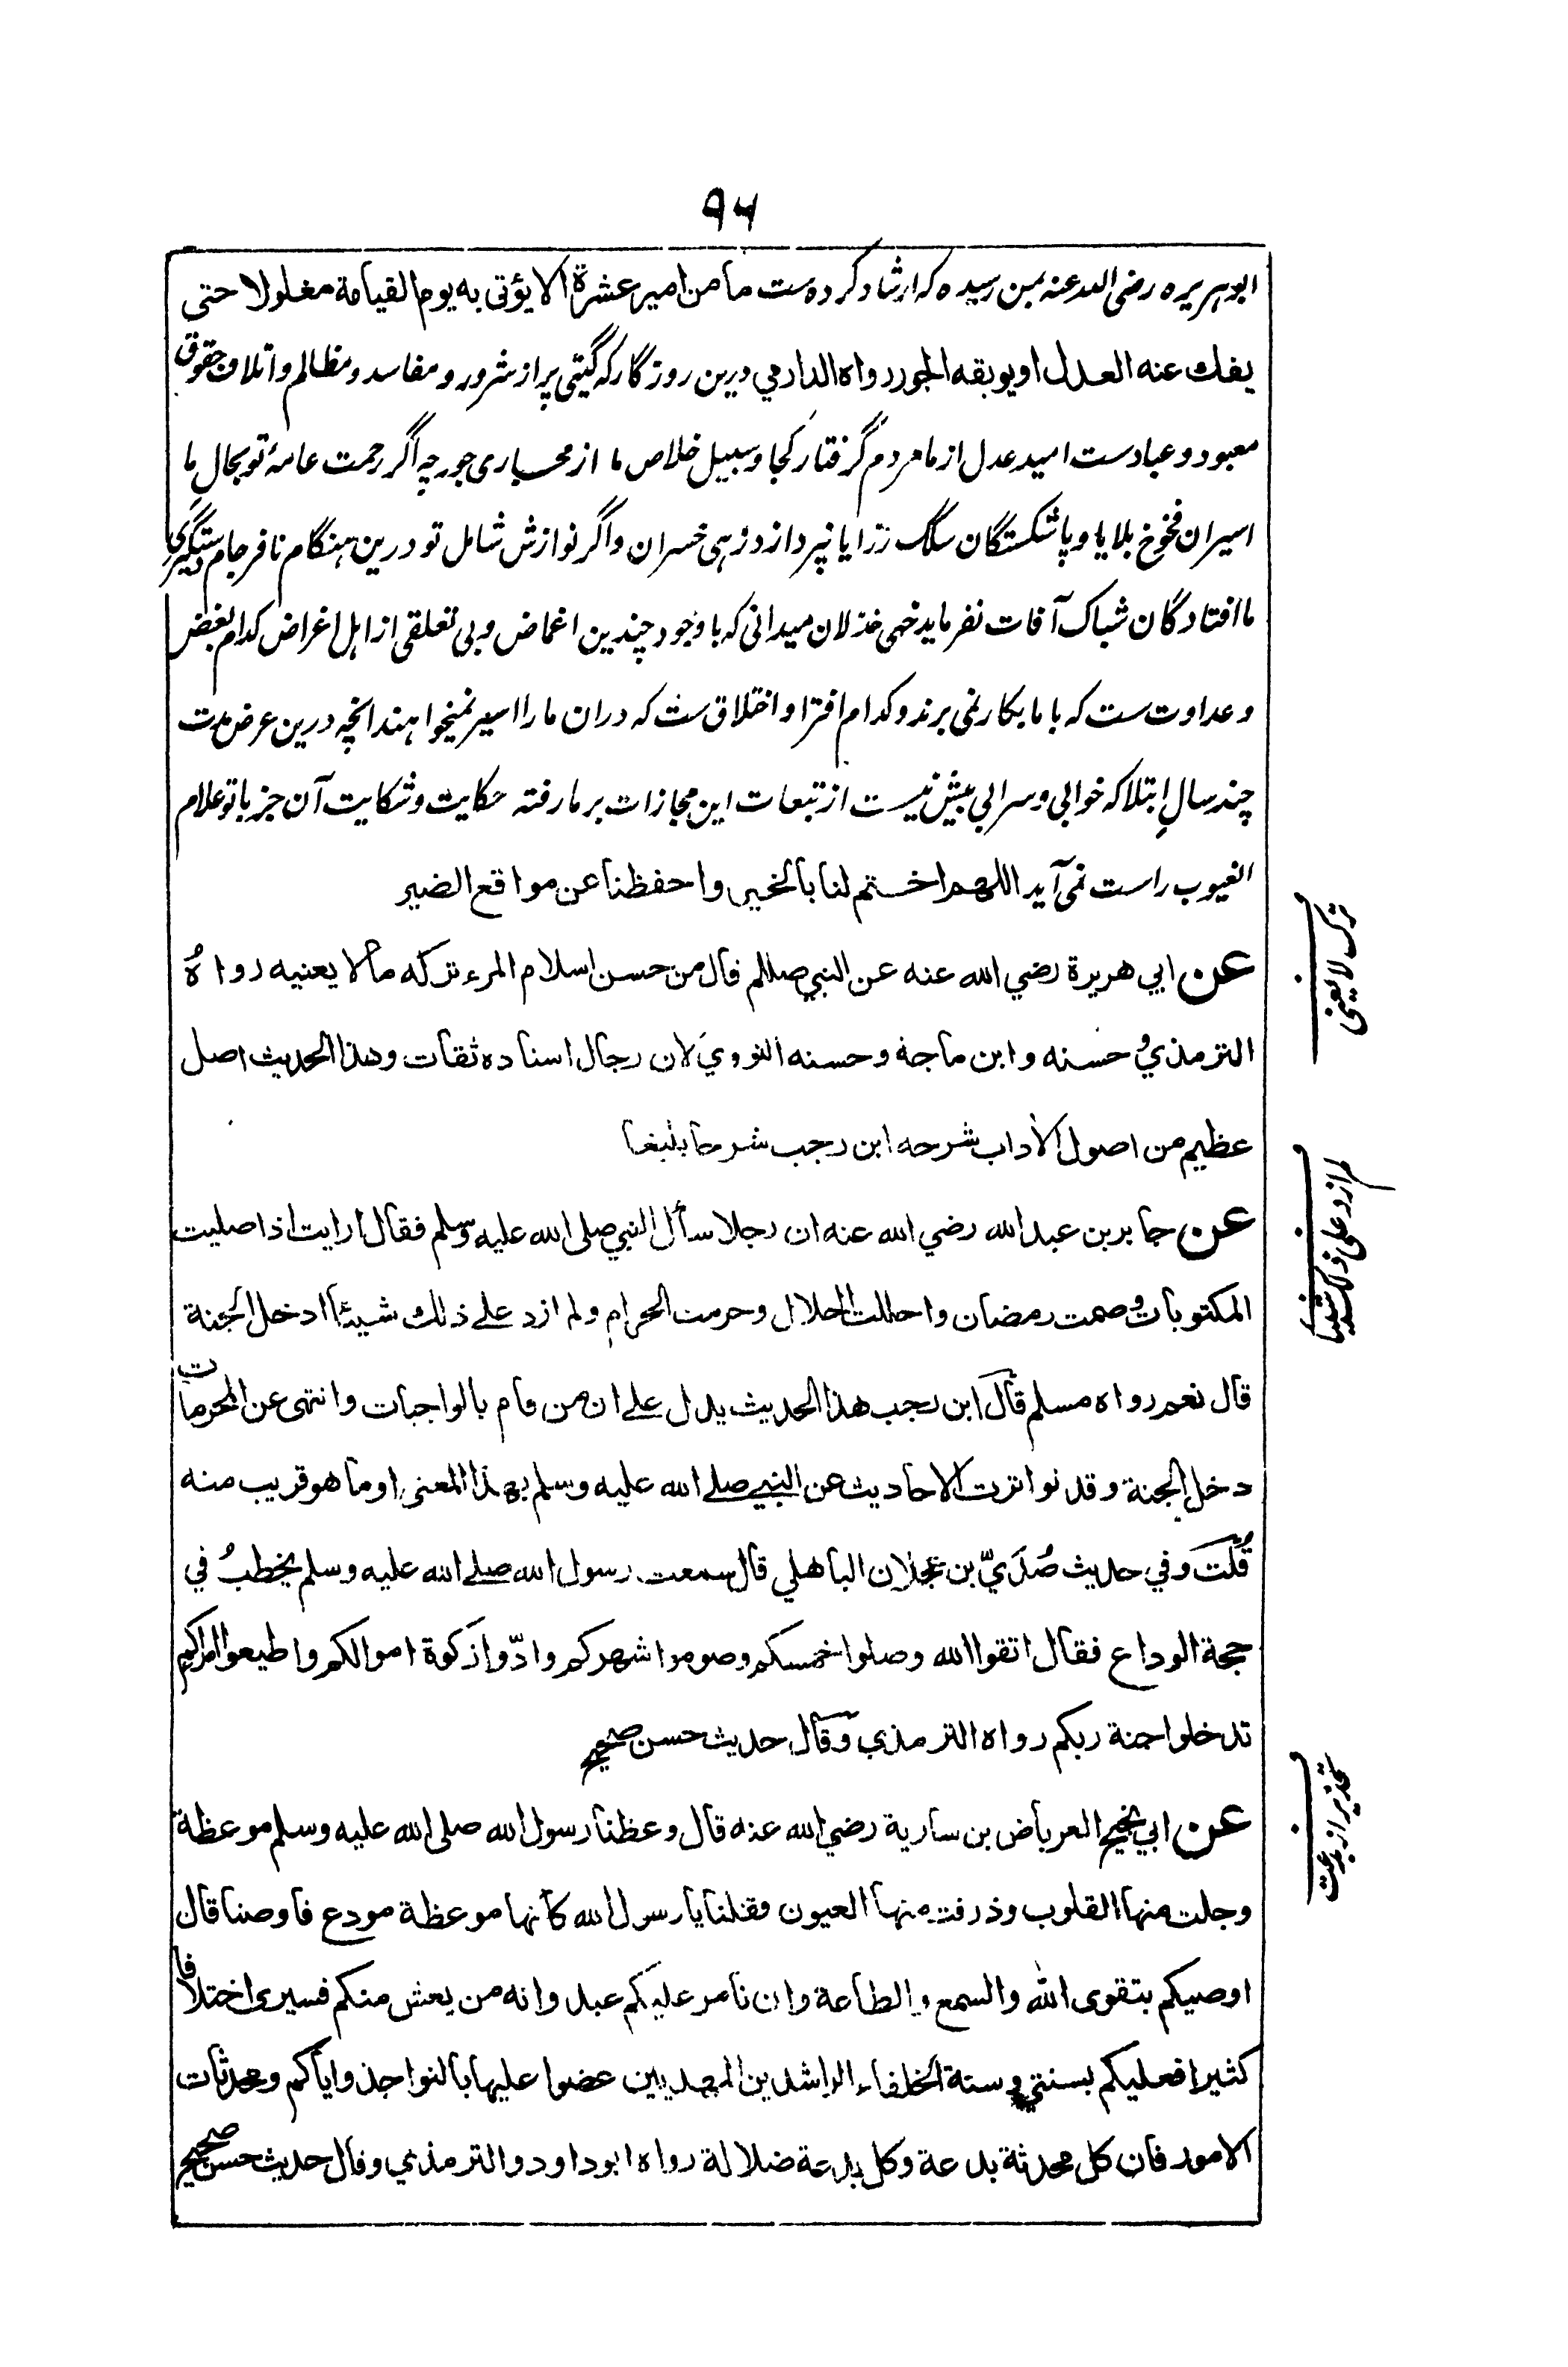 ۹۶
ابوہریرہ رضی اللہ عنہ بمن رسیدہ کہ ارشاد کردہ ست ما من امیر عشرۃ الا یؤتی بہ یوم القیامة مغلولا حتی
یفك عنه العدل او یوبقه الجور رواہ الدارمي درین روزگار کہ گیتی پر از شرور و مفاسد و مظالم و اتلاف حقوق
معبود و عبادست امید عدل از ما مردم گرفتار کجا و سبیل خلاص ما از مجاری جور چہ اگر رحمت عامۂ تو بحالِ ما
اسیران فخوخ بلایا و پاشکستگان سنگ رزایا نپردازد زہی خسران و اگر نوازش شامل تو درین ہنگام نافرجام دستگیری
ما افتادگان شباک آفات نفرماید خہی خذلان میدانی کہ باوجود چندین اغماض و بی تعلقی از اہل اغراض کدام بغض
و عداوت ست کہ با ما بکار نمی برند و کدام افترا و اختلاق ست کہ دران ما را اسیر نمیخواہند انچہ درین عرض مدت
چند سالِ ابتلا کہ خوابی و سرابی بیش نیست از تبعات این مجازات بر ما رفتہ حکایت و شکایت آن جز با تو علام
الغیوب راست نمی آید اللهم اختم لنا بالخیر واحفظنا عن مواقع الضیر
عن ابي هريرة رضي الله عنه عن النبي صللم قال من حسن اسلام المرء تركه ما لا يعنيه رواهُ
الترمذي وحسنه وابن ماجة وحسنه النووي لان رجال اسناده ثقات وهذا الحديث اصل
عظيم من اصول الاداب شرحه ابن رجب شرحا بليغا
عن جابر بن عبد الله رضي الله عنه ان رجلا سأل النبي صلى الله عليه وسلم فقال ارايت اذا صليت
المكتوبات وصمت رمضان واحللت الحلال وحرمت الحرام ولم ازد على ذلك شيئا ادخل الجنة
قال نعم رواه مسلم قال ابن رجب هذا الحديث يدل على ان من قام بالواجبات وانتهى عن المحرمات
دخل الجنة وقد تواترت الاحاديث عن النبي صلى الله عليه وسلم بهذا المعنى او ما هو قريب منه
قُلت وفي حديث صُدَيّ بن عجلان الباهلي قال سمعت رسول الله صلى الله عليه وسلم يخطبُ في
حجة الوداع فقال اتقوا الله وصلوا خمسكم وصوموا شهركم وادّوا زكوة اموالكم واطيعوا امراءكم
تدخلوا جنة ربكم رواه الترمذي وقال حديث حسن صحيح
عن ابي نجيح العرباض بن سارية رضي الله عنه قال وعظنا رسول الله صلى الله عليه وسلم موعظة
وجلت منها القلوب وذرفت منها العيون فقلنا يا رسول الله كانها موعظة مودع فاوصنا قال
اوصيكم بتقوى الله والسمع والطاعة وان تامر عليكم عبد وانه من يعش منكم فسيرى اختلافا
كثيرا فعليكم بسنتي وسنة الخلفاء الراشدين المهديين عضوا عليها بالنواجذ واياكم ومحدثات
الامور فان كل محدثة بدعة وكل بدعة ضلالة رواه ابوداود والترمذي وقال حديث حسن صحيح
ترک لا یعنی
لم ازد علی ذلک شیئا
تحذیر از بدعت